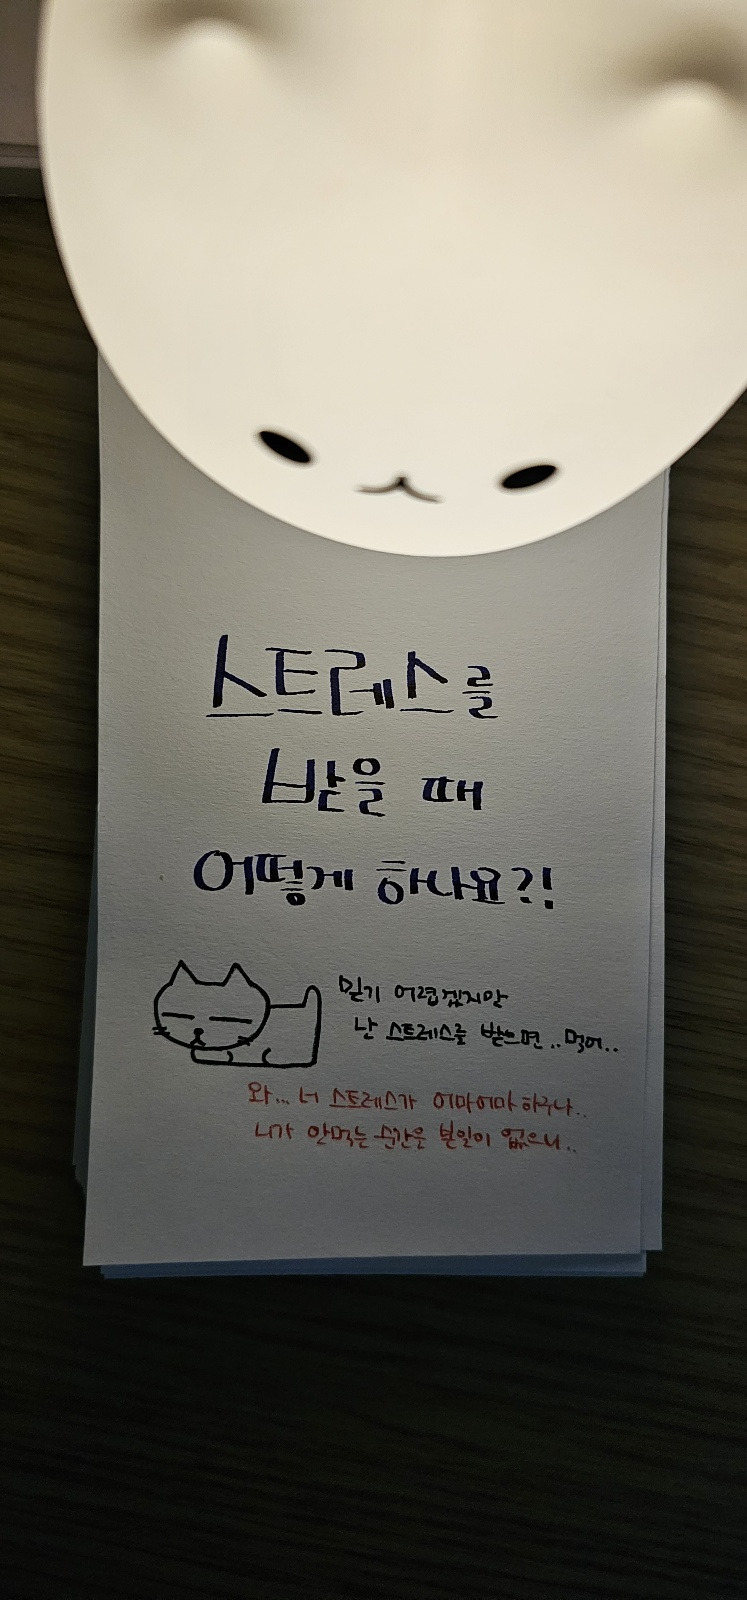 스트레스를
받을 때
어떻게 하나요?!
믿기 어렵겠지만
난 스트레스를 받으면..먹어..
와... 너 스트레스가 어마어마 하구나..
니가 안먹는 순간을 본일이 없으니..